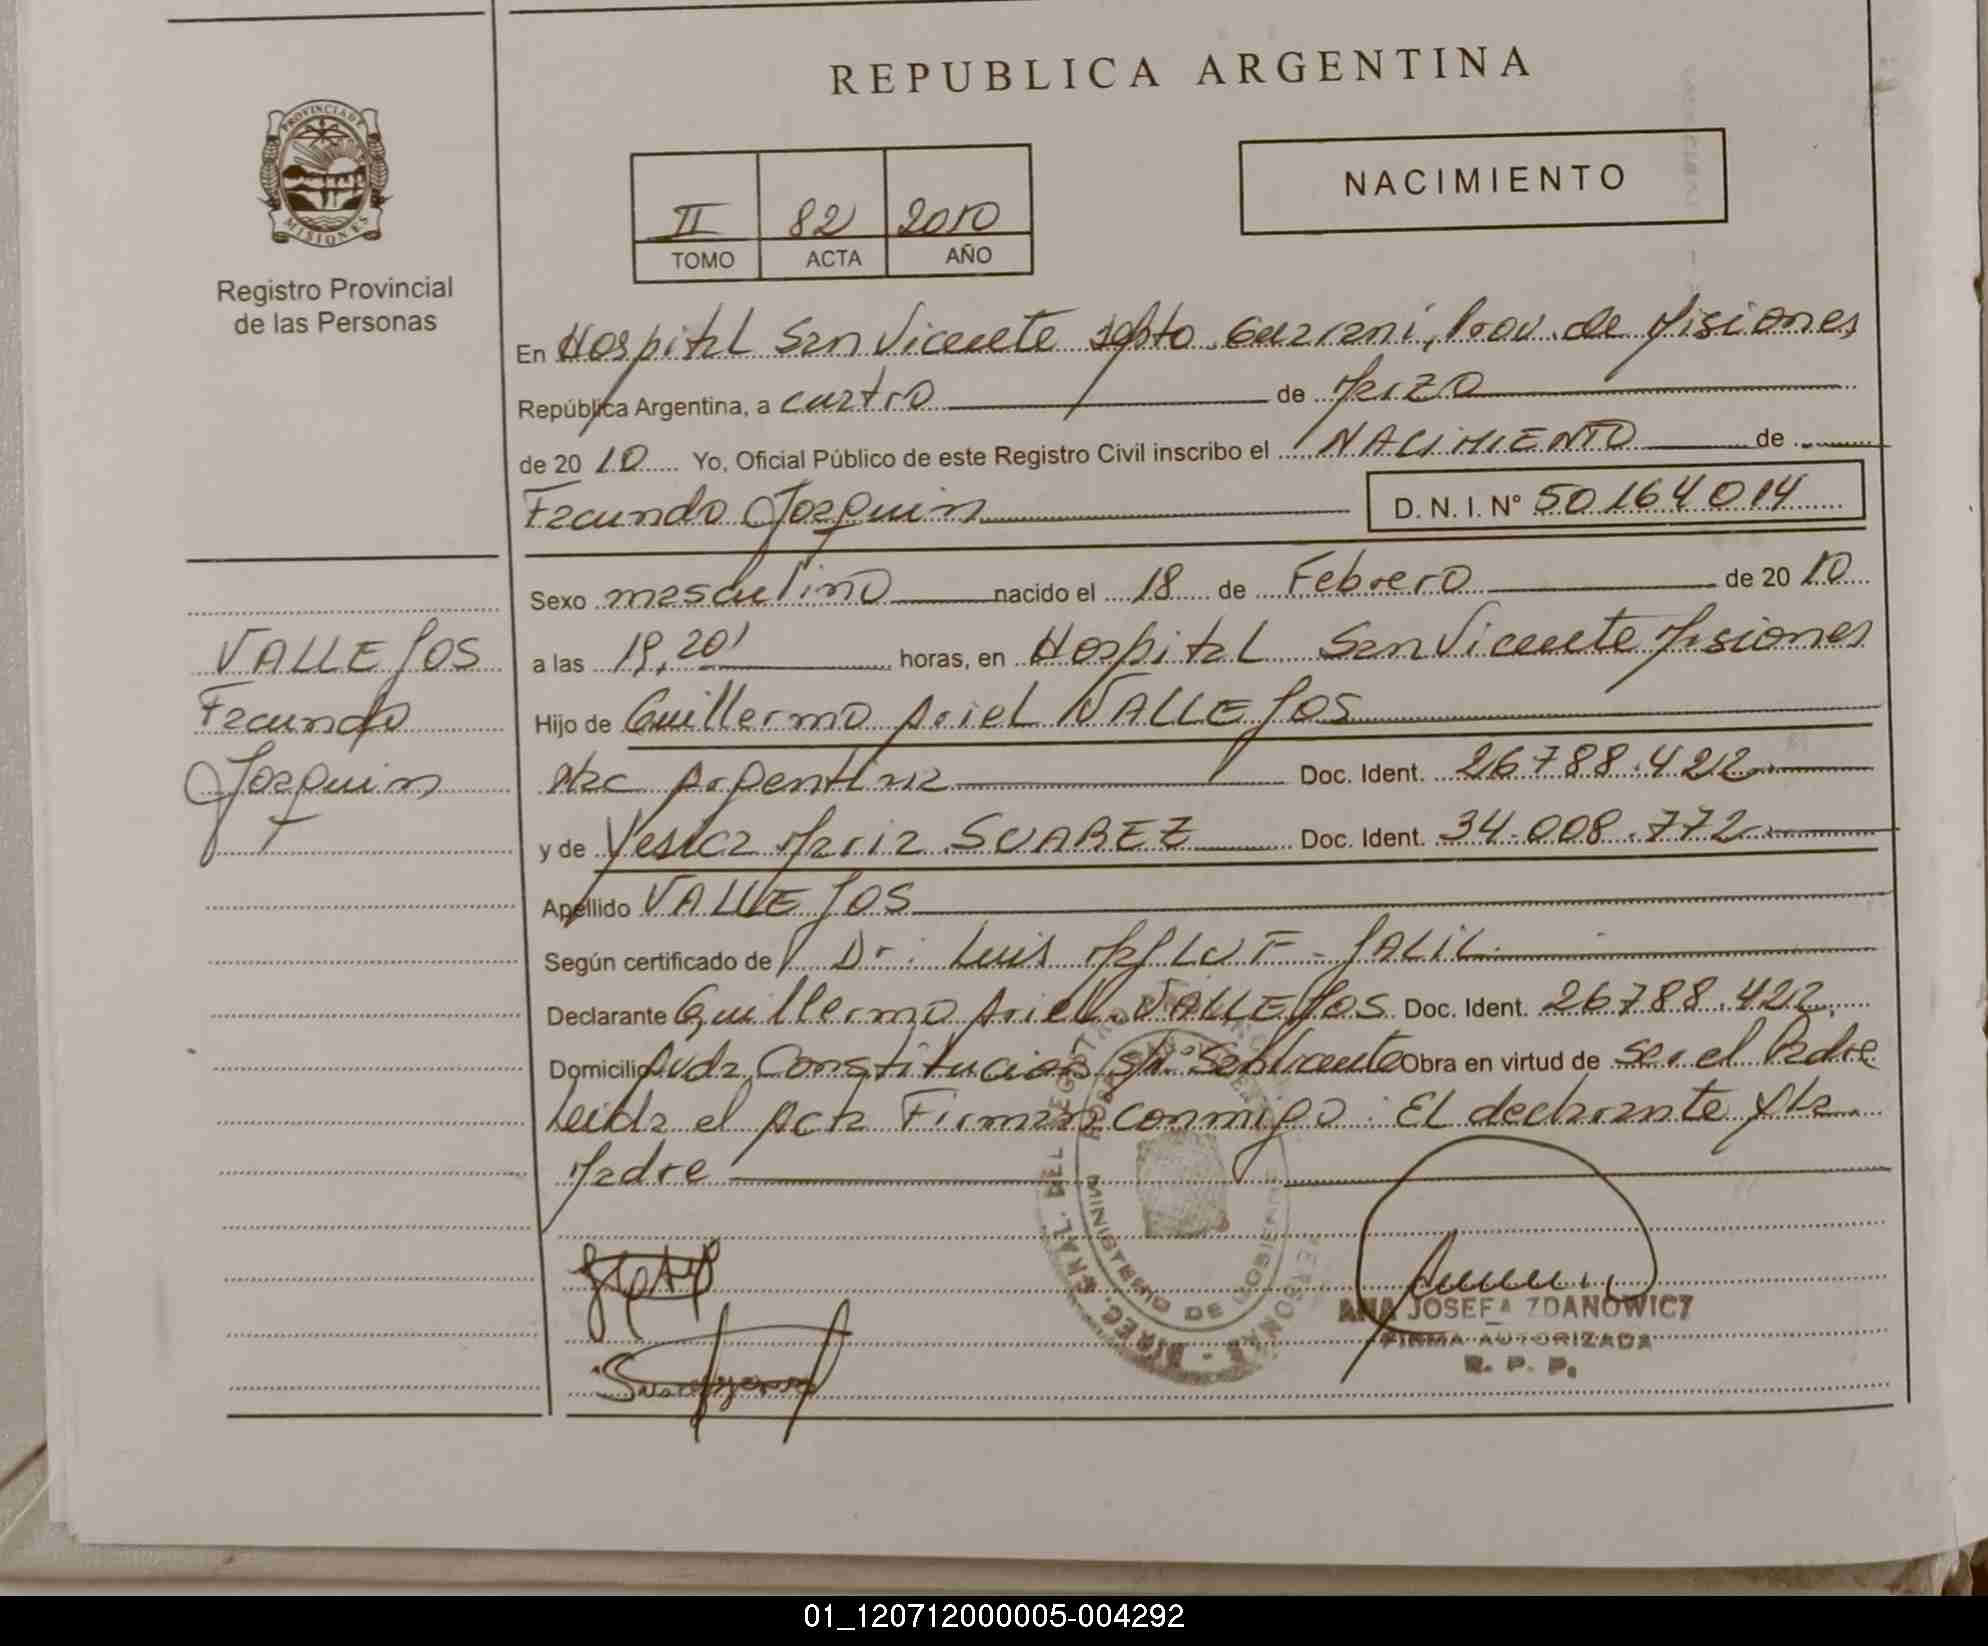 REPUBLICA ARGENTINA
PROVINCIA DE
MISIONES
Registro Provincial
de las Personas
NACIMIENTO
II 82 2010
TOMO ACTA AÑO
En Hospital San Vicente Dpto. Guarani, Prov. de Misiones
República Argentina, a cuatro de Marzo
de 20 10 Yo, Oficial Público de este Registro Civil inscribo el NACIMIENTO de
Facundo Joaquin D. N. I. N° 50164014
Sexo masculino nacido el 18 de Febrero de 20 10
VALLEJOS
Facundo
Joaquin
a las 19,20' horas, en Hospital San Vicente Misiones
Hijo de Guillermo Ariel VALLEJOS
Nac Argentina Doc. Ident. 26788.422
y de Yesica Maria SUAREZ Doc. Ident. 34.008.772
Apellido VALLEJOS
Según certificado de Dr: Luis JALIL
Declarante Guillermo Ariel VALLEJOS Doc. Ident. 26788.422
Domicilio Avda Constitucion S/N° San Vicente Obra en virtud de ser el Padre
Leida el Acta Firman conmigo: El declarante y la
Madre
MINISTERIO DE GOBIERNO
ANA JOSEFA ZDANOWICZ
FIRMA AUTORIZADA
R. P. P.
01_120712000005-004292